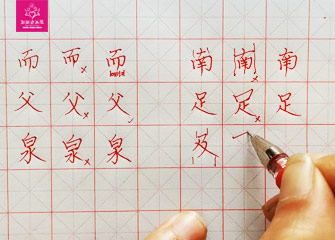 而 而 而 南 南 南
父 父 父 足 足 足
泉 泉 泉 及